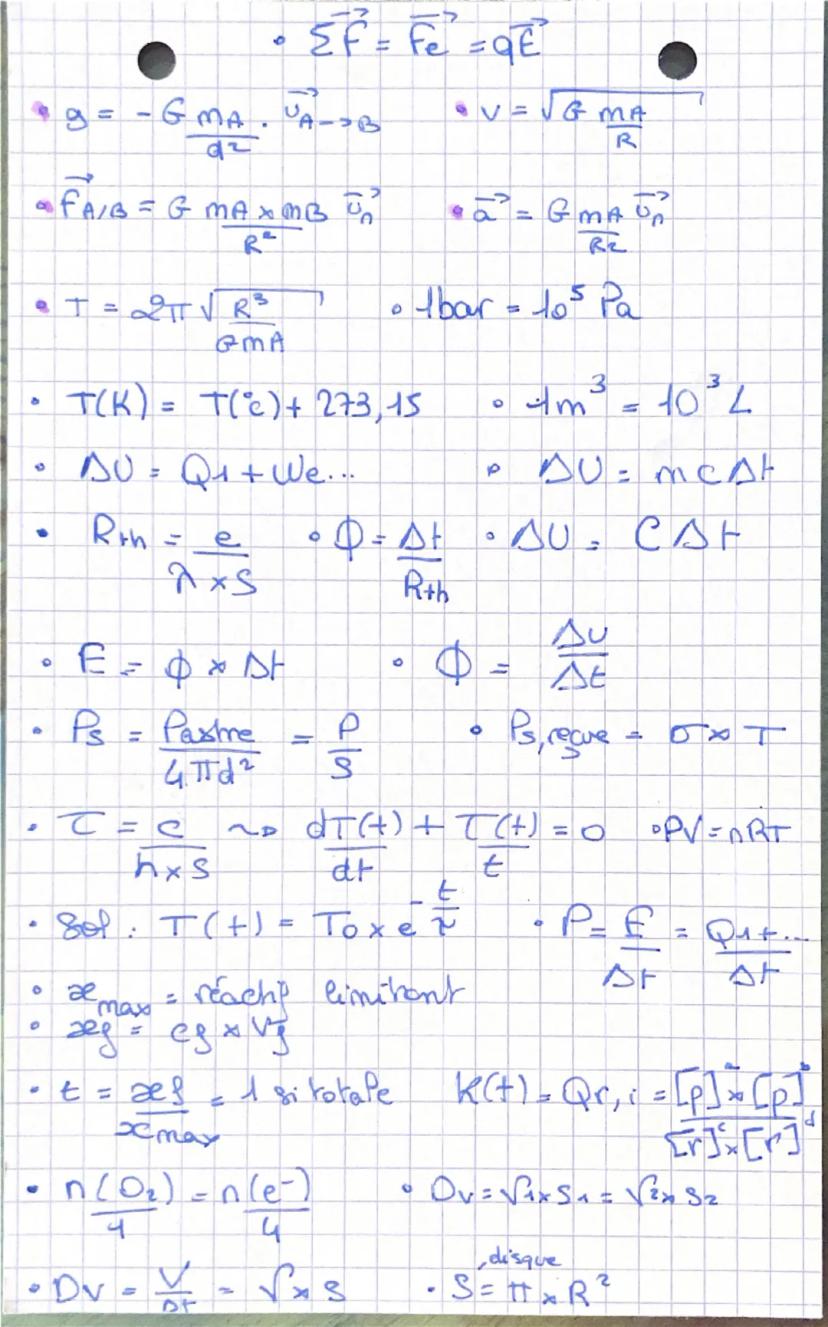 • ΣF⃗ = F⃗e = qE⃗
• g = - G mA/d² . u⃗A->B • v = √(G mA/R)
• F⃗A/B = G mA x mB/R² u⃗n • a⃗ = G mA/R² u⃗n
• T = 2π√(R³/GmA) • 1bar = 10⁵ Pa
• T(K) = T(°c) + 273,15 • 1m³ = 10³ L
• ΔU = Q1 + We... • ΔU = mcΔt
• Rth = e/λ x S • Φ = Δt/Rth • ΔU = CΔt
• E = Φ x Δt • Φ = ΔU/Δt
• Ps = Pastre/4πd² = P/S • Ps,reçue = σ x T
• τ = c/h x S ~> dT(t)/dt + T(t)/t = 0 • PV = nRT
• Sol : T(t) = T0 x e^(-t/τ) • P = E/Δt = Q1+.../Δt
• xmax = réactif limitant
• xf = cf x Vf
• t = xf/xmax = 1 si totale K(t) = Qr,i = [p]ᵃ x [p]ᵇ/[r]ᶜ x [r]ᵈ
• n(O2)/1 = n(e⁻)/4 • Dv = V1 x S1 = V2 x S2
• Dv = V/Δt = V x S • S, disque = π x R²